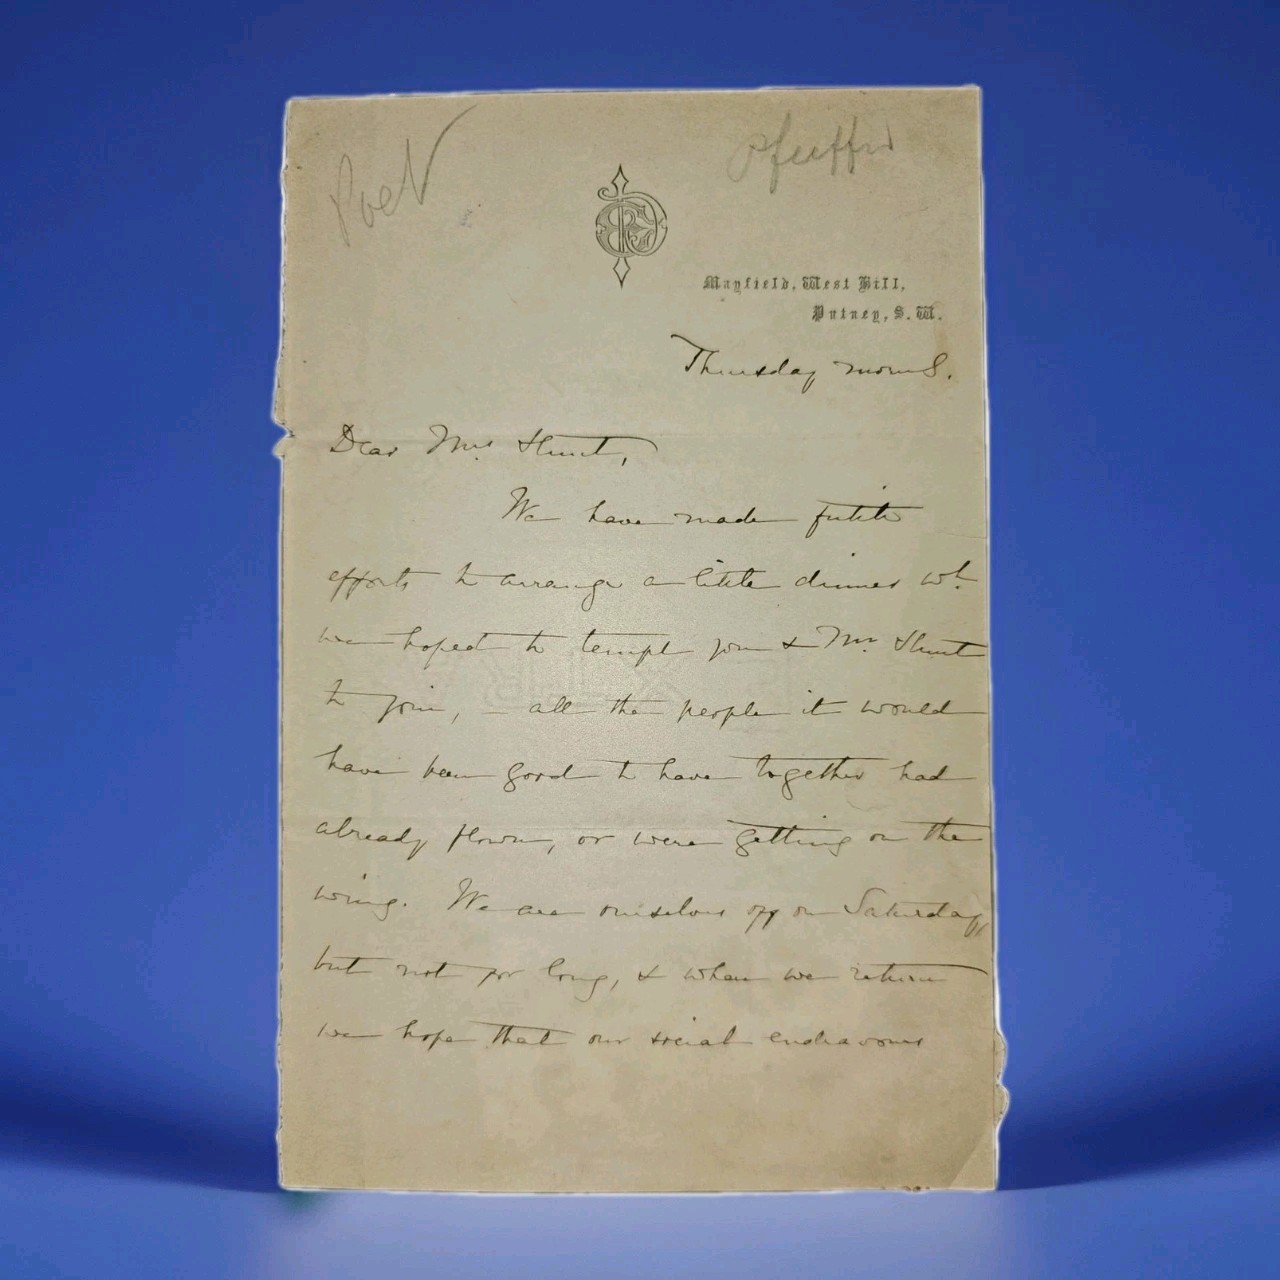 Poet
Pfeiffer
Mayfield, West Hill,
Putney, S.W.
Thursday morng.
Dear Mrs Hunt,
We have made futile
efforts to arrange a little dinner wh.
we hoped to tempt you & Mr. Hunt
to join, – all the people it would
have been good to have together had
already flown, or were getting on the
wing. We are ourselves off on Saturday,
but not for long, & when we return
we hope that our social endeavours